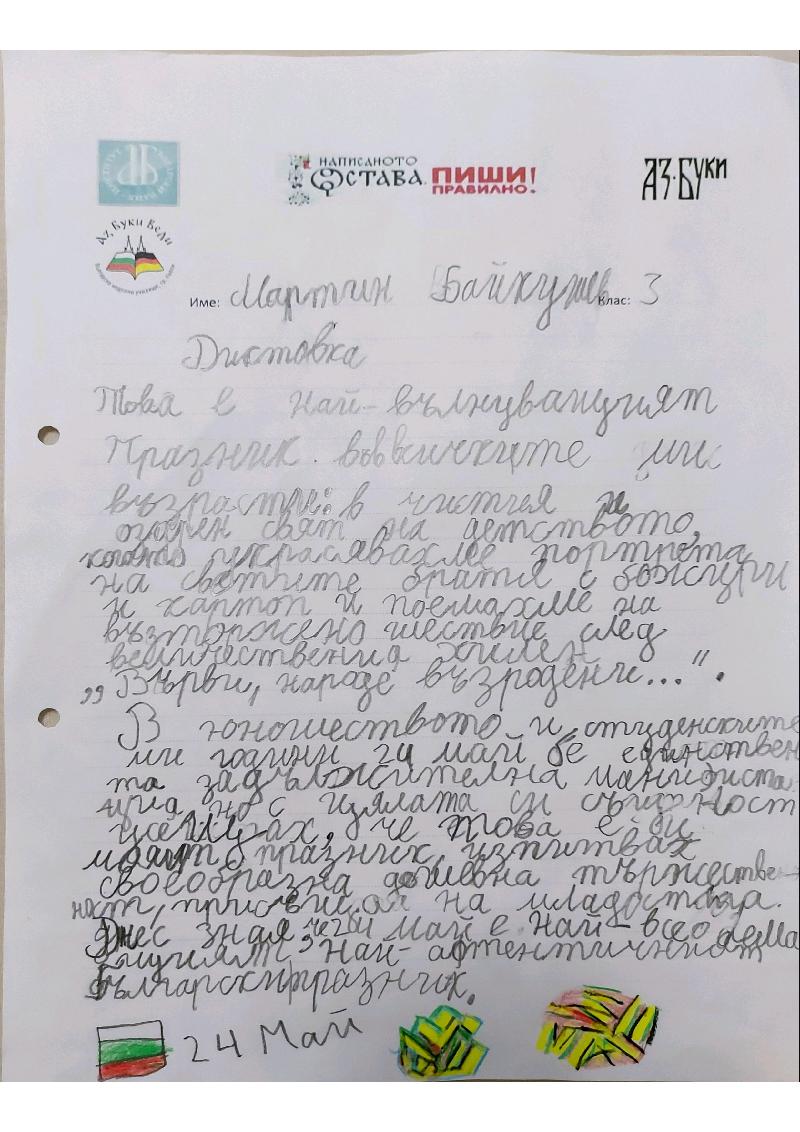 НАПИСАНОТО
ОСТАВА. ПИШИ!
ПРАВИЛНО!
АЗ·БУКИ
Аз, Буки Веди
Име: Мартин Байкушев Клас: 3
Диктовка
Това е най-вълнуващият
Празник. във всичките ми
възрасти: в чистия и
озарен свят на детството,
когато украсявахме портрета
на светите братя с божури
и картоп и поемахме на
възторжено шествие след
величествения химн
„Върви, народе възродени...".
В юношеството и студенските
ми години 24 май бе единствен
та задължителна манифиста
ция, но с цялата си същност
усещах, че това е би
моят празник, изпитвах
своеобразна душевна тържествен-
ност, присъща на младостта.
Днес зная че 24 май е най-всео
най-автентичният
български празник.
24 Май